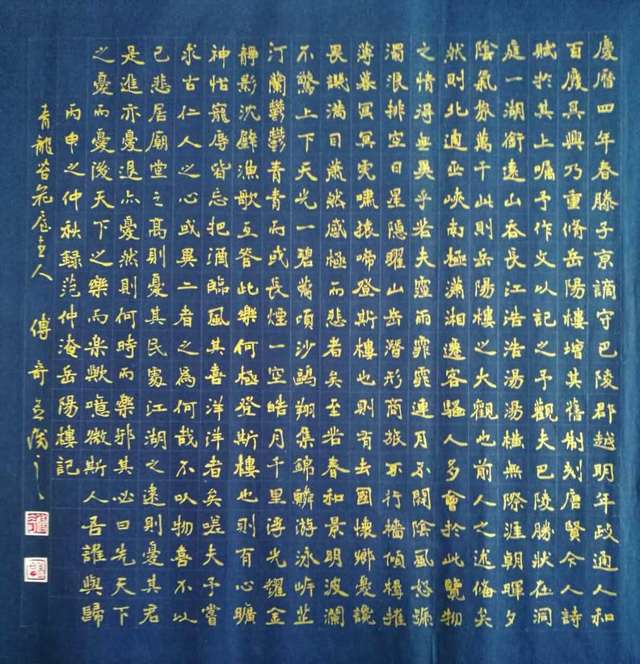 慶曆四年春滕子京謫守巴陵郡越明年政通人和
百廢具興乃重脩岳陽樓增其舊制刻唐賢今人詩
賦於其上囑予作文以記之予觀夫巴陵勝狀在洞
庭一湖銜遠山吞長江浩浩湯湯橫無際涯朝暉夕
陰氣象萬千此則岳陽樓之大觀也前人之述備矣
然則北通巫峽南極瀟湘遷客騷人多會於此覽物
之情得無異乎若夫霪雨霏霏連月不開陰風怒號
濁浪排空日星隱曜山岳潛形商旅不行檣傾楫摧
薄暮冥冥虎嘯猿啼登斯樓也則有去國懷鄉憂讒
畏譏滿目蕭然感極而悲者矣至若春和景明波瀾
不驚上下天光一碧萬頃沙鷗翔集錦鱗游泳岸芷
汀蘭鬱鬱青青而或長煙一空皓月千里浮光耀金
靜影沈璧漁歌互答此樂何極登斯樓也則有心曠
神怡寵辱皆忘把酒臨風其喜洋洋者矣嗟夫予嘗
求古仁人之心或異二者之為何哉不以物喜不以
己悲居廟堂之高則憂其民處江湖之遠則憂其君
是進亦憂退亦憂然則何時而樂邪其必曰先天下
之憂而憂後天下之樂而樂歟噫微斯人吾誰與歸
丙申之仲秋録范仲淹岳陽樓記
青龍主人 傅奇